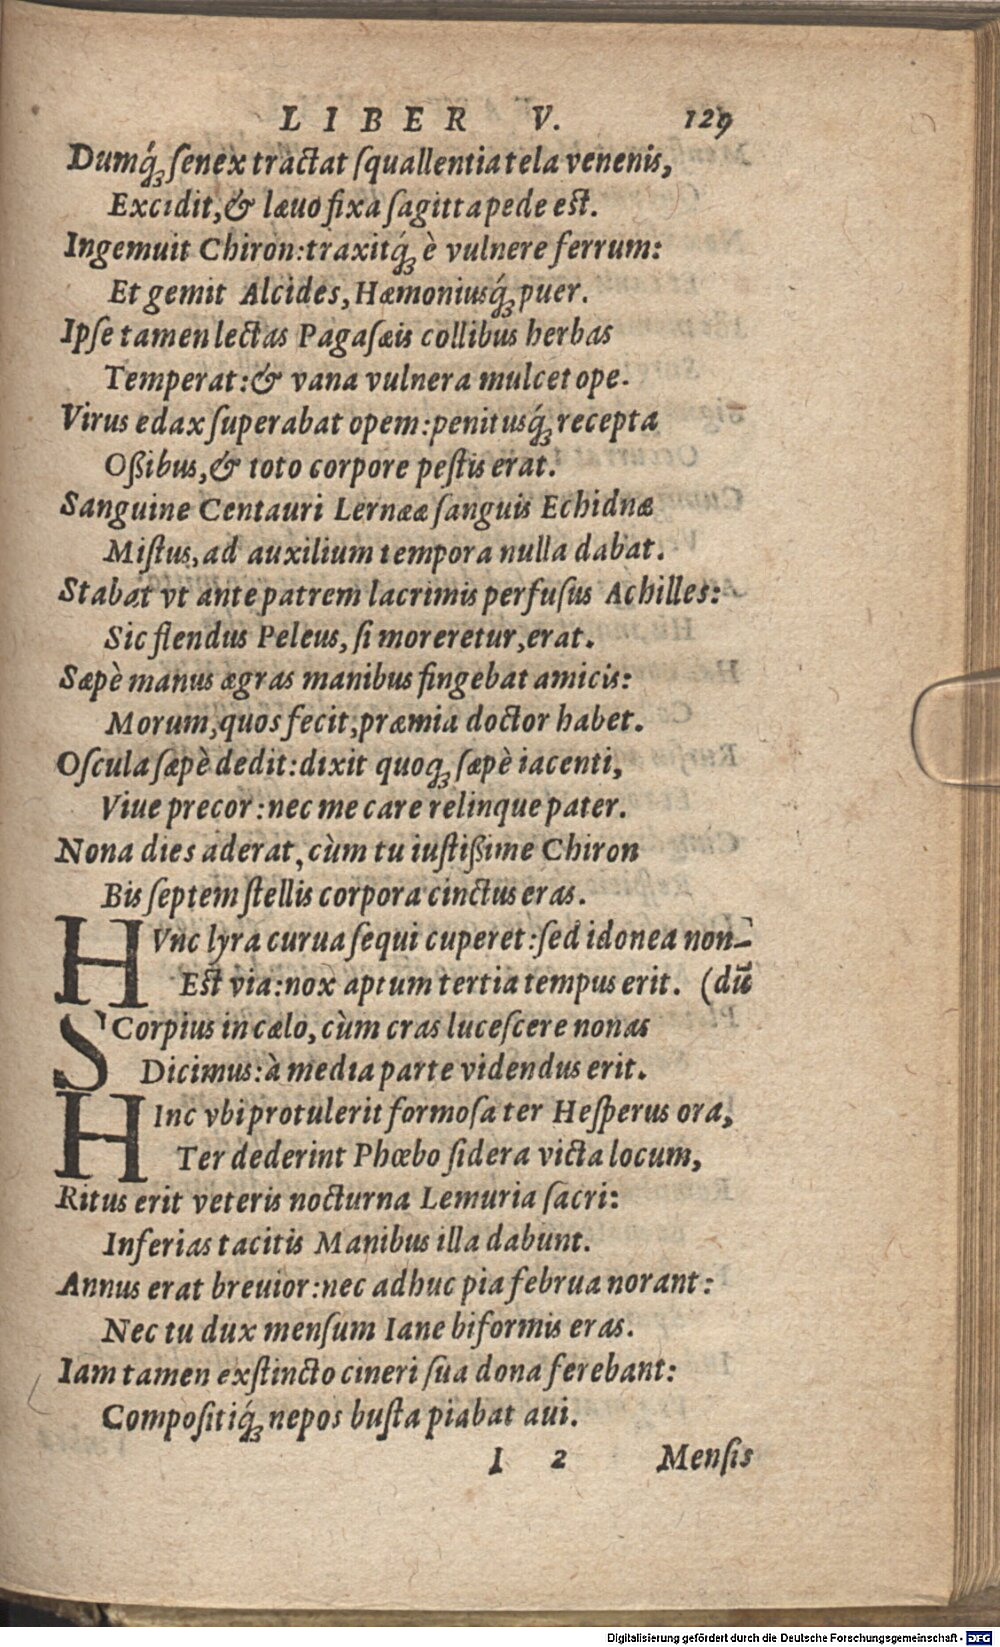 LIBER V. 129
Dumq́ꝫ ſenex tractat ſquallentia tela venenis,
Excidit, & læuo fixa ſagitta pede eſt.
Ingemuit Chiron: traxitq́ꝫ è vulnere ferrum:
Et gemit Alcides, Hæmoniusq́ꝫ puer.
Ipſe tamen lectas Pagaſæis collibus herbas
Temperat: & vana vulnera mulcet ope.
Virus edax ſuperabat opem: penitusq́ꝫ recepta
Oßibus, & toto corpore peſtis erat.
Sanguine Centauri Lernææ ſanguis Echidnæ
Miſtus, ad auxilium tempora nulla dabat.
Stabat vt ante patrem lacrimis perfuſus Achilles:
Sic flendus Peleus, ſi moreretur, erat.
Sæpè manus ægras manibus fingebat amicis:
Morum, quos fecit, præmia doctor habet.
Oſcula ſæpè dedit: dixit quoqꝫ ſæpè iacenti,
Viue precor: nec me care relinque pater.
Nona dies aderat, cùm tu iuſtißime Chiron
Bis ſeptem ſtellis corpora cinctus eras.
HVnc lyra curua ſequi cuperet: ſed idonea non-
Eſt via: nox aptum tertia tempus erit. (dū
SCorpius in cælo, cùm cras luceſcere nonas
Dicimus: à media parte videndus erit.
HInc vbi protulerit formoſa ter Heſperus ora,
Ter dederint Phœbo ſidera victa locum,
Ritus erit veteris nocturna Lemuria ſacri:
Inferias tacitis Manibus illa dabunt.
Annus erat breuior: nec adhuc pia februa norant:
Nec tu dux menſum Iane biformis eras.
Iam tamen exſtincto cineri ſua dona ferebant:
Compoſitiq́ꝫ nepos buſta piabat aui.
I 2 Menſis
Digitalisierung gefördert durch die Deutsche Forschungsgemeinschaft - DFG